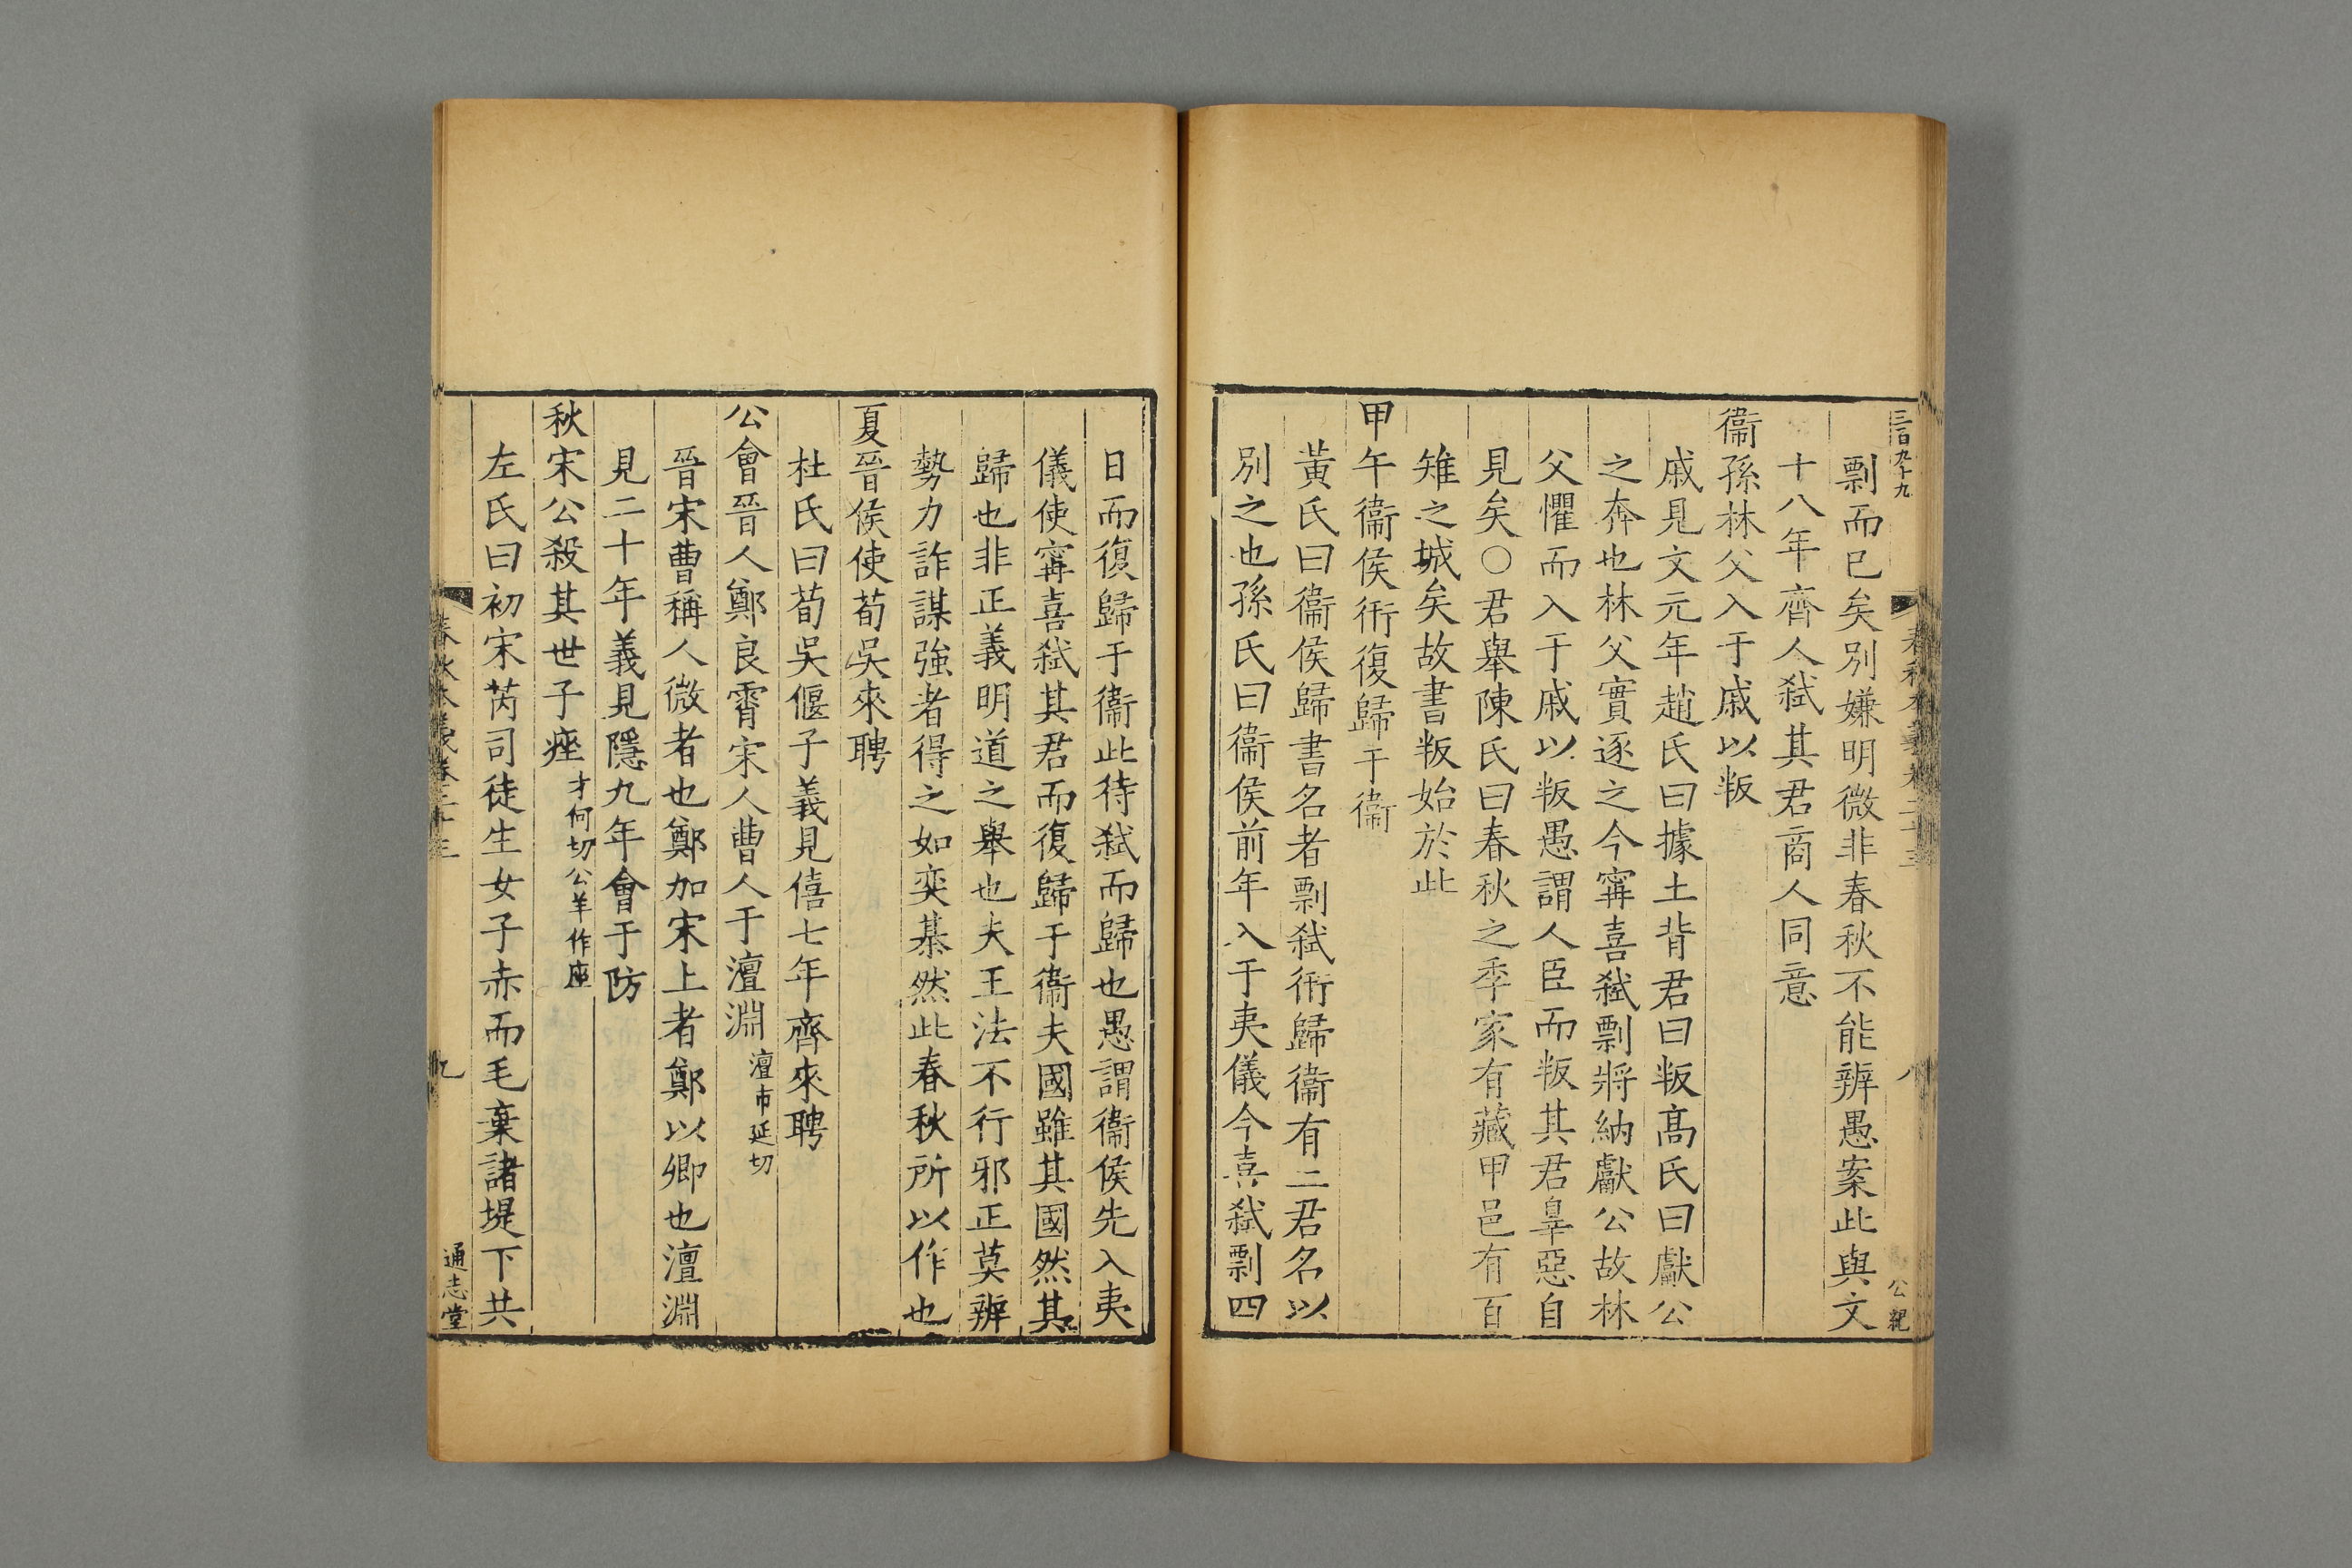 三百九十九
公親
剽而已矣別嫌明微非春秋不能辨愚案此與文
十八年齊人弒其君商人同意
衞孫林父入于戚以叛
戚見文元年趙氏曰據土背君曰叛髙氏曰獻公
之奔也林父實逐之今甯喜弒剽將納獻公故林
父懼而入于戚以叛愚謂人臣而叛其君辠惡自
見矣○君舉陳氏曰春秋之季家有藏甲邑有百
雉之城矣故書叛始於此
甲午衞侯衎復歸于衞
黃氏曰衞侯歸書名者剽弒衎歸衞有二君名以
別之也孫氏曰衞侯前年入于夷儀今喜弒剽四
日而復歸于衞此待弒而歸也愚謂衞侯先入夷
儀使甯喜弒其君而復歸于衞夫國雖其國然其
歸也非正義明道之舉也夫王法不行邪正莫辨
勢力詐謀強者得之如奕棊然此春秋所以作也
夏晉侯使荀吳來聘
杜氏曰荀吳偃子義見僖七年齊來聘
公會晉人鄭良霄宋人曹人于澶淵澶市延切
晉宋曹稱人微者也鄭加宋上者鄭以卿也澶淵
見二十年義見隱九年會于防
秋宋公殺其世子痤才何切公羊作座
左氏曰初宋芮司徒生女子赤而毛棄諸堤下共
春秋本義卷二十三
九
通志堂